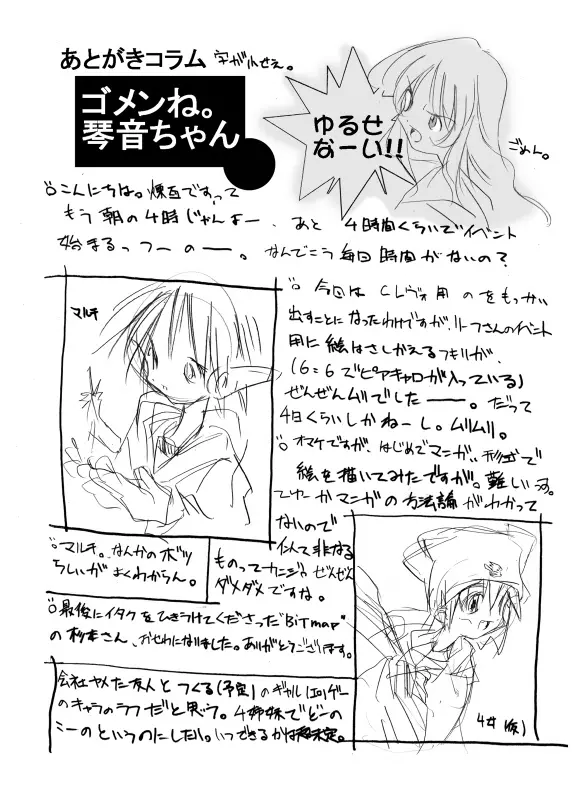 あとがきコラム 字が汚せぇ。
ゴメンね。
琴音ちゃん
ゆるせ
なーい!!
ごめん。
こんにちは。煉瓦ですって
もう朝の4時じゃんよー、あと 4時間くらいでイベント
始まるっつーのー。なんでこう毎回時間がないの?
今回はCレヴォ用のをもっかい
出すことになったわけですが、リーフさんのイベント
用に絵はさしかえるつもりが、
(6=6でピアキャロが入っている)
ぜんぜんムリでしたー。だって
4日くらいしかねーし。ムリムリ。
オマケですが、はじめてマンガ、形式で
絵を描いてみたですが。難しい
マンガの方法論がわかって
ないので
似て非なる
ものってカンジ。ぜんぜん
ダメダメですな。
マルチ
マルチ。なんかのボツ
らしいがよくわからん。
最後にイタクをひきうけてくださった"BiTmap"
の杉本さん、おせわになりました。ありがとうございます。
会社ヤメた友人とつくる(予定)のギャル(エロ)ゲー
のキャラのラフだと思う。4姉妹でどーの
こーのというのにしたい。いつできるかは未定。
4女(仮)